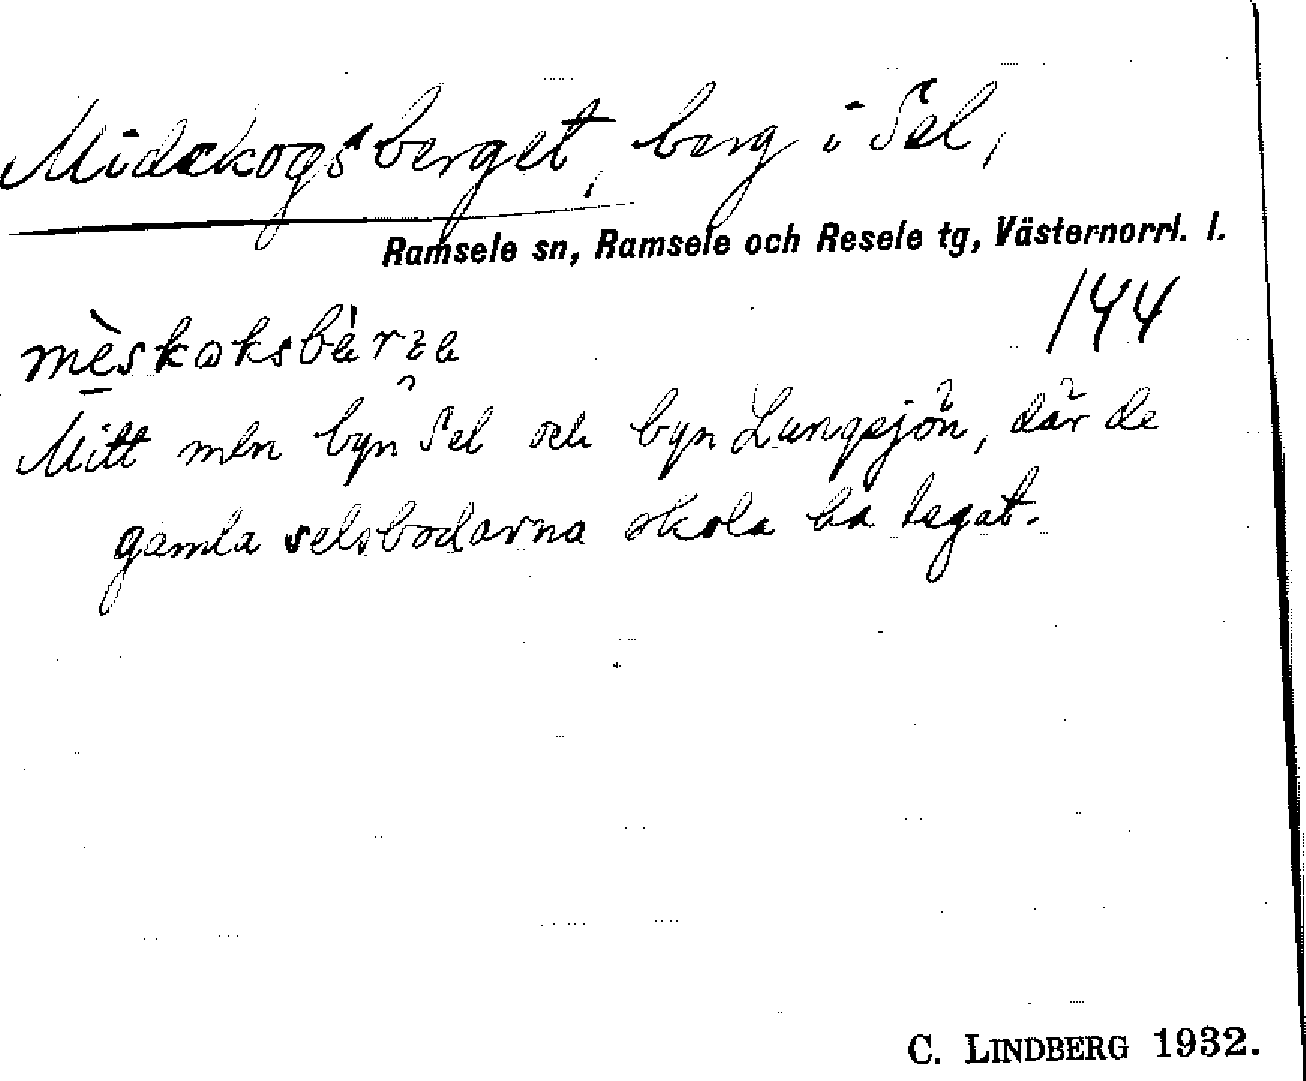 Midskogsberget, berg i Sel,
Ramsele sn, Ramsele och Resele tg, Västernorrl. l.
144
mèskoksbàrƨa
Mitt mln byn Sel och byn Lungsjön, där de
gamla selsbodarna skola ha legat.
C. LINDBERG 1932.